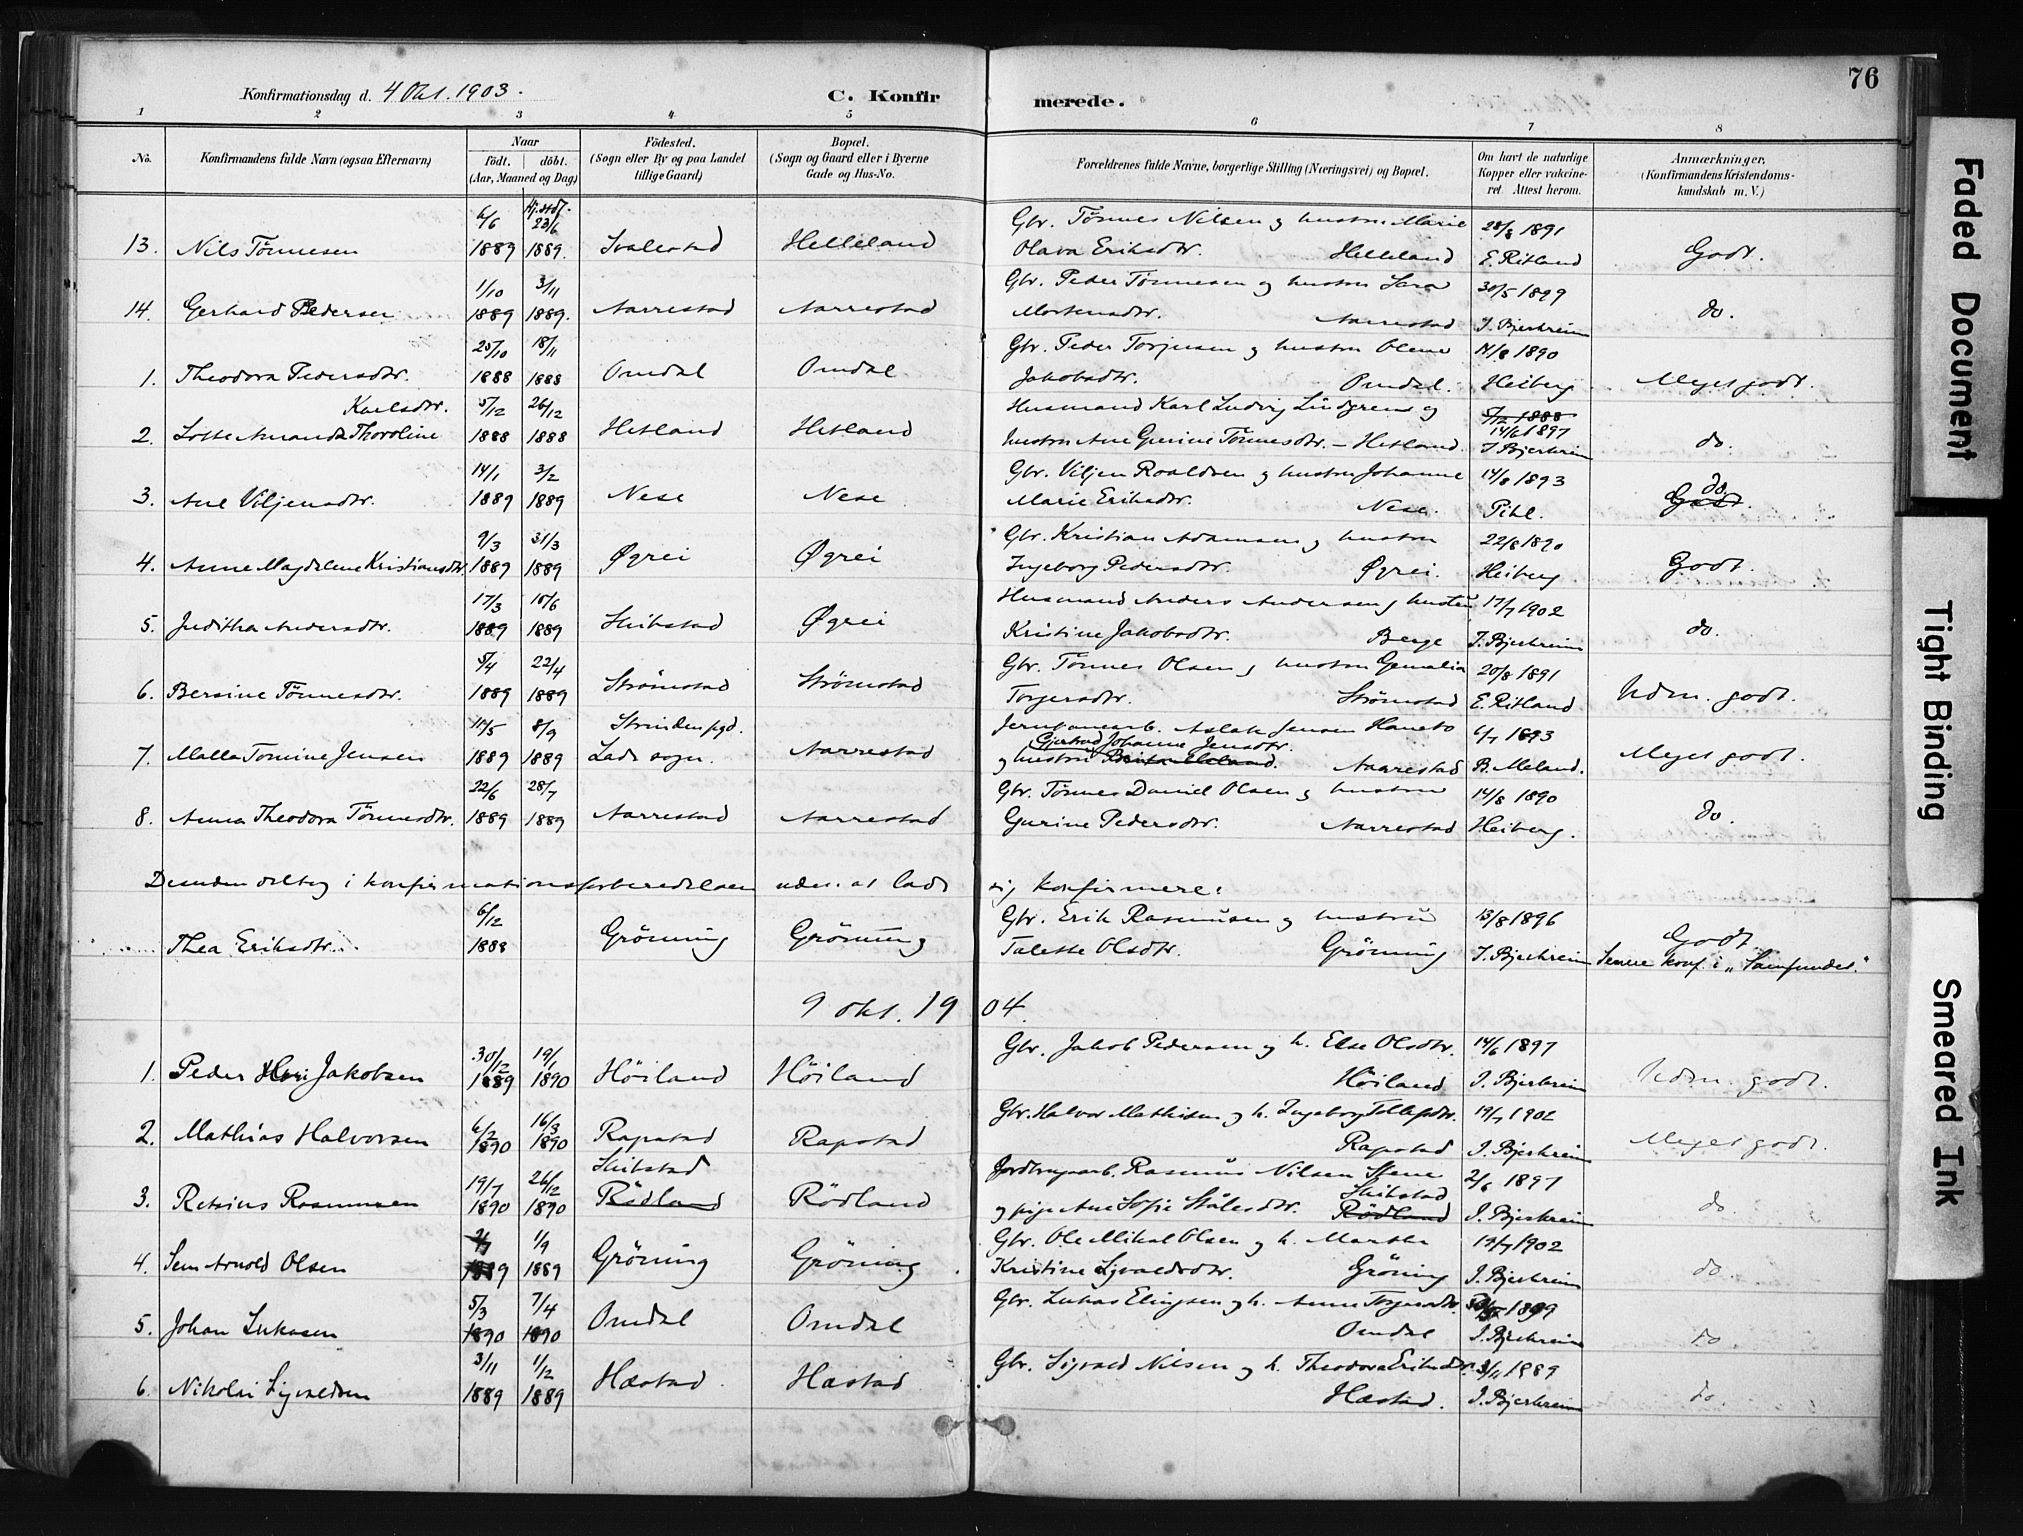 76
Konfirmationsdag d. 4 Okt. 1903.
C. Konfirmerede.
1 2 3 4 5 6 7 8
No. Konfirmandens fulde Navn (ogsaa Efternavn) Naar Födt. döbt. (Aar, Maaned og Dag) Födested. (Sogn eller By og paa Landet tillige Gaard) Bopæl. (Sogn og Gaard eller i Byerne Gade og Hus-No. Forældrenes fulde Navne, borgerlige Stilling (Næringsvei) og Bopæl. Om havt de naturlige Kopper eller vakcineret. Attest herom. Anmærkninger, (Konfirmandens Kristendomskundskab m. V.)
6/6 23/6 Gbr. Tønnes Nilsen og hustru Marie 28/8 1891
13. Nils Tønnesen 1889 1889. Svalestad Helleland Olava Eriksdtr. Helleland E. Ritland Godt.
1/10 3/11 Gbr. Peder Tønnesen og hustru Sara 30/5 1899
14. Gerhard Pedersen 1889 1889. Aarrestad Aarrestad Mortensdtr. Aarrestad I. Bjerkreim do.
25/10 18/11 Gbr. Peder Torjusen og hustru Olene 14/8 1890
1. Theodora Pedersdtr. 1888 1888 Omdal Omdal Jakobsdtr. Omdal. Heiberg Meget godt.
Karlsdtr. 5/12 26/12 Husmand Karl Ludvig Lindgren og 5/12 1888
14/6 1897
2. Lotte Amanda Thoroline 1888 1888 Hetland Hetland hustru Ane Gurine Tønnesdtr. – Hetland. I Bjerkreim do.
14/1 3/2 Gbr. Viljen Roaldsen og hustru Johanne 14/8 1893 do.
3. Ane Viljensdtr. 1889 1889 Nese Nese Marie Eriksdtr. Nese. Pihl. Godt.
9/3 31/3 Gbr. Kristian Adamsen og hustru 22/8 1890
4. Anne Magdalene Kristiansdtr. 1889 1889 Øgrei Øgrei Ingeborg Pedersdtr. Øgrei. Heiberg Godt.
17/3 10/6 Husmand Anders Andersen og hustru 17/7 1902
5. Juditha Andersdtr. 1889 1889 Skibstad Øgrei Kristine Jakobsdtr. Berge I. Bjerkreim do.
5/4 22/4 Gbr. Tønnes Olsen og hustru Gemalia 20/8 1891
6. Bersine Tønnesdtr. 1889 1889 Strømstad Strømstad Torgersdtr. Strømstad E. Ritland Udm. godt.
14/5 8/9 Strinden pgd. Jernbanearb. Aslak Jensen Haneto 6/7 1893
Gjertrud Johanne Jensdtr.
7. Malla Tomine Jensen 1889 1889 Lade sogn. Aarrestad og hustru Aarrestad B. Meland. Meget godt.
22/6 28/7 Gbr. Tønnes Daniel Olsen og hustru 14/8 1890
8. Anna Theodora Tønnesdtr. 1889 1889 Aarrestad Aarrestad Gurine Pedersdtr. Aarrestad Heiberg. do.
Desuden deltog i konfirmationsforberedelsen uden at lade sig konfirmere:
6/12 Gbr. Erik Rasmusen og hustru 13/8 1896 Godt
Thea Eriksdtr. 1888 Grönning Grönning Talette Olsdtr. Grönning I. Bjerkreim Senere konf. i "Samfundet."
9 Okt. 1904.
30/12 19/1 Gbr. Jakob Pedersen og h. Else Olsdtr. 14/6 1897
1. Peder Jakobsen 1889 1890 Höiland Höiland Höiland I. Bjerkreim Udm. godt.
6/2 16/3 Gbr. Halvor Mathisen og h. Ingeborg Tollefsdtr. 19/7 1902
2. Mathias Halvorsen 1890 1890 Rapstad Rapstad Rapstad I. Bjerkreim Meget godt.
19/7 26/12 Skibstad Jordbrugsarb. Rasmus Nilsen Stene 2/6 1897
Skibstad
3. Retsius Rasmussen 1890 1890 Rödland Rödland og pige Ane Sofie Ståles dtr. Rödland I. Bjerkreim do.
1/9 Gbr. Ole Mikal Olsen og h. Martha 19/7 1902
4. Sem Arnold Olsen 1889 1889 Gröning Gröning Kristine Sigvaldsdtr. Gröning I. Bjerkreim do.
5/3 7/4 Gbr. Lukas Elingsen og h. Anne Torgersdtr. 1899
5. Johan Lukasen 1890 1890 Omdal Omdal Omdal I. Bjerkreim do
3/11 1/12 Gbr. Sigvald Nilsen og h. Theodora Eriksdtr. 3/11 1889
6. Nikolai Sigvaldsen 1889 1889 Hæstad Hæstad Hæstad. I. Bjerkreim do.
Faded Document
Tight Binding
Smeared Ink